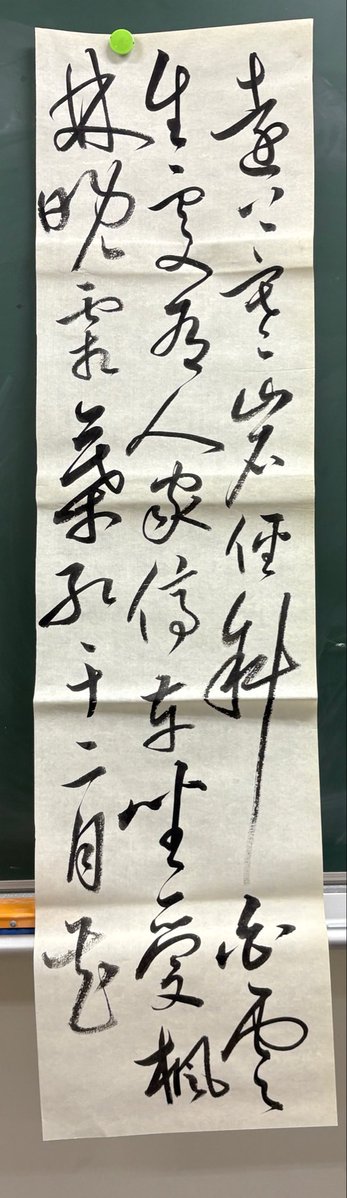 遠上寒山石徑斜白雲
生處有人家停車坐愛楓
林晚霜葉紅于二月花